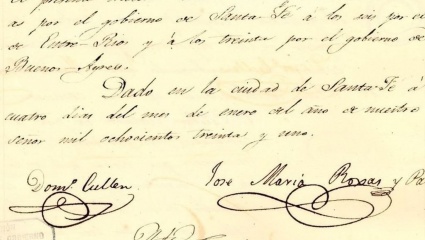 as por el gobierno de Santa-Fé á los seis por el
de Entre-Rios y á los treinta por el gobierno de
Buenos Ayres
Dado en la ciudad de Santa-Fé á
cuatro dias del mes de enero del año de nuestro
señor mil ochocientos treinta y uno.
Domo. Cullen
Jose Maria Roxas y Pa